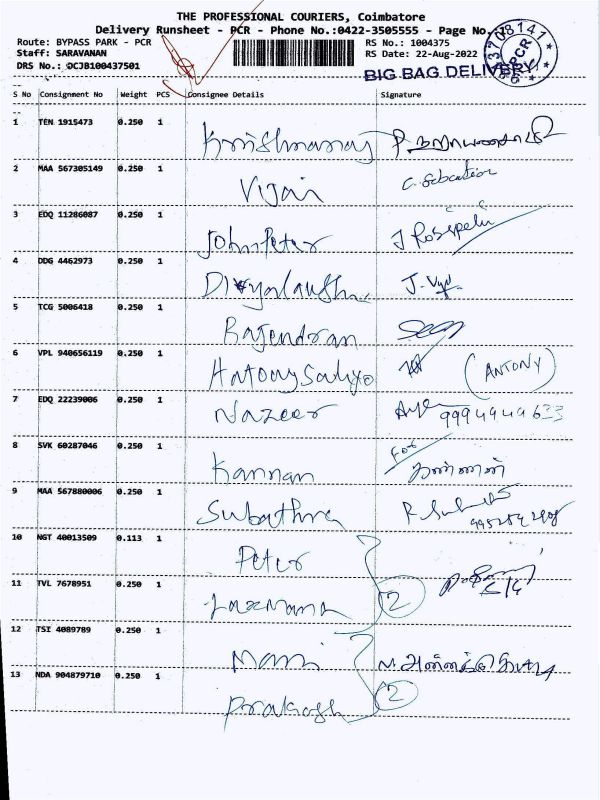 THE PROFESSIONAL COURIERS, Coimbatore
Delivery Runsheet - PCR - Phone No.:0422-3505555 - Page No.
Route: BYPASS PARK - PCR
Staff: SARAVANAN
DRS No.: OCJB100437501
RS No.: 1004375
RS Date: 22-Aug-2022
BIG BAG DELIVERY
PCR
S No Consignment No Weight PCS Consignee Details Signature
1 TEN 1915473 0.250 1
2 MAA 567305149 0.250 1 Vijai C. Sebastian
3 EDQ 11286087 0.250 1 John Peter
4 DDG 4462973 0.250 1
5 TCG 5006418 0.250 1 Rajendran
6 VPL 940656119 0.250 1 (ANTONY)
7 EDQ 22239006 0.250 1 Nazeer
8 SVK 60287046 0.250 1 Kannan For கண்ணன்
9 MAA 567880006 0.250 1 Subathra
10 NGT 40013509 0.113 1 Peter
11 TVL 7678951 0.250 1 Laxmana 2
12 TSI 4089789 0.250 1 Mani
13 NDA 904879710 0.250 1 Prakash 2